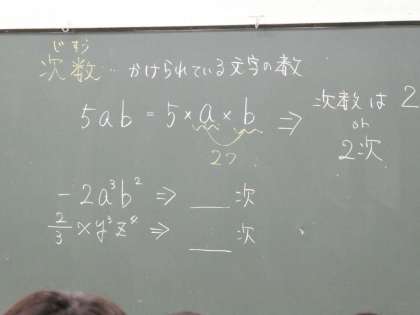 じすう
次数…かけられている文字の数
5ab = 5×a×b ⇒ 次数は2
or
2つ
2次
-2a³b² ⇒ __次
2/3 × y³z⁴ ⇒ __次